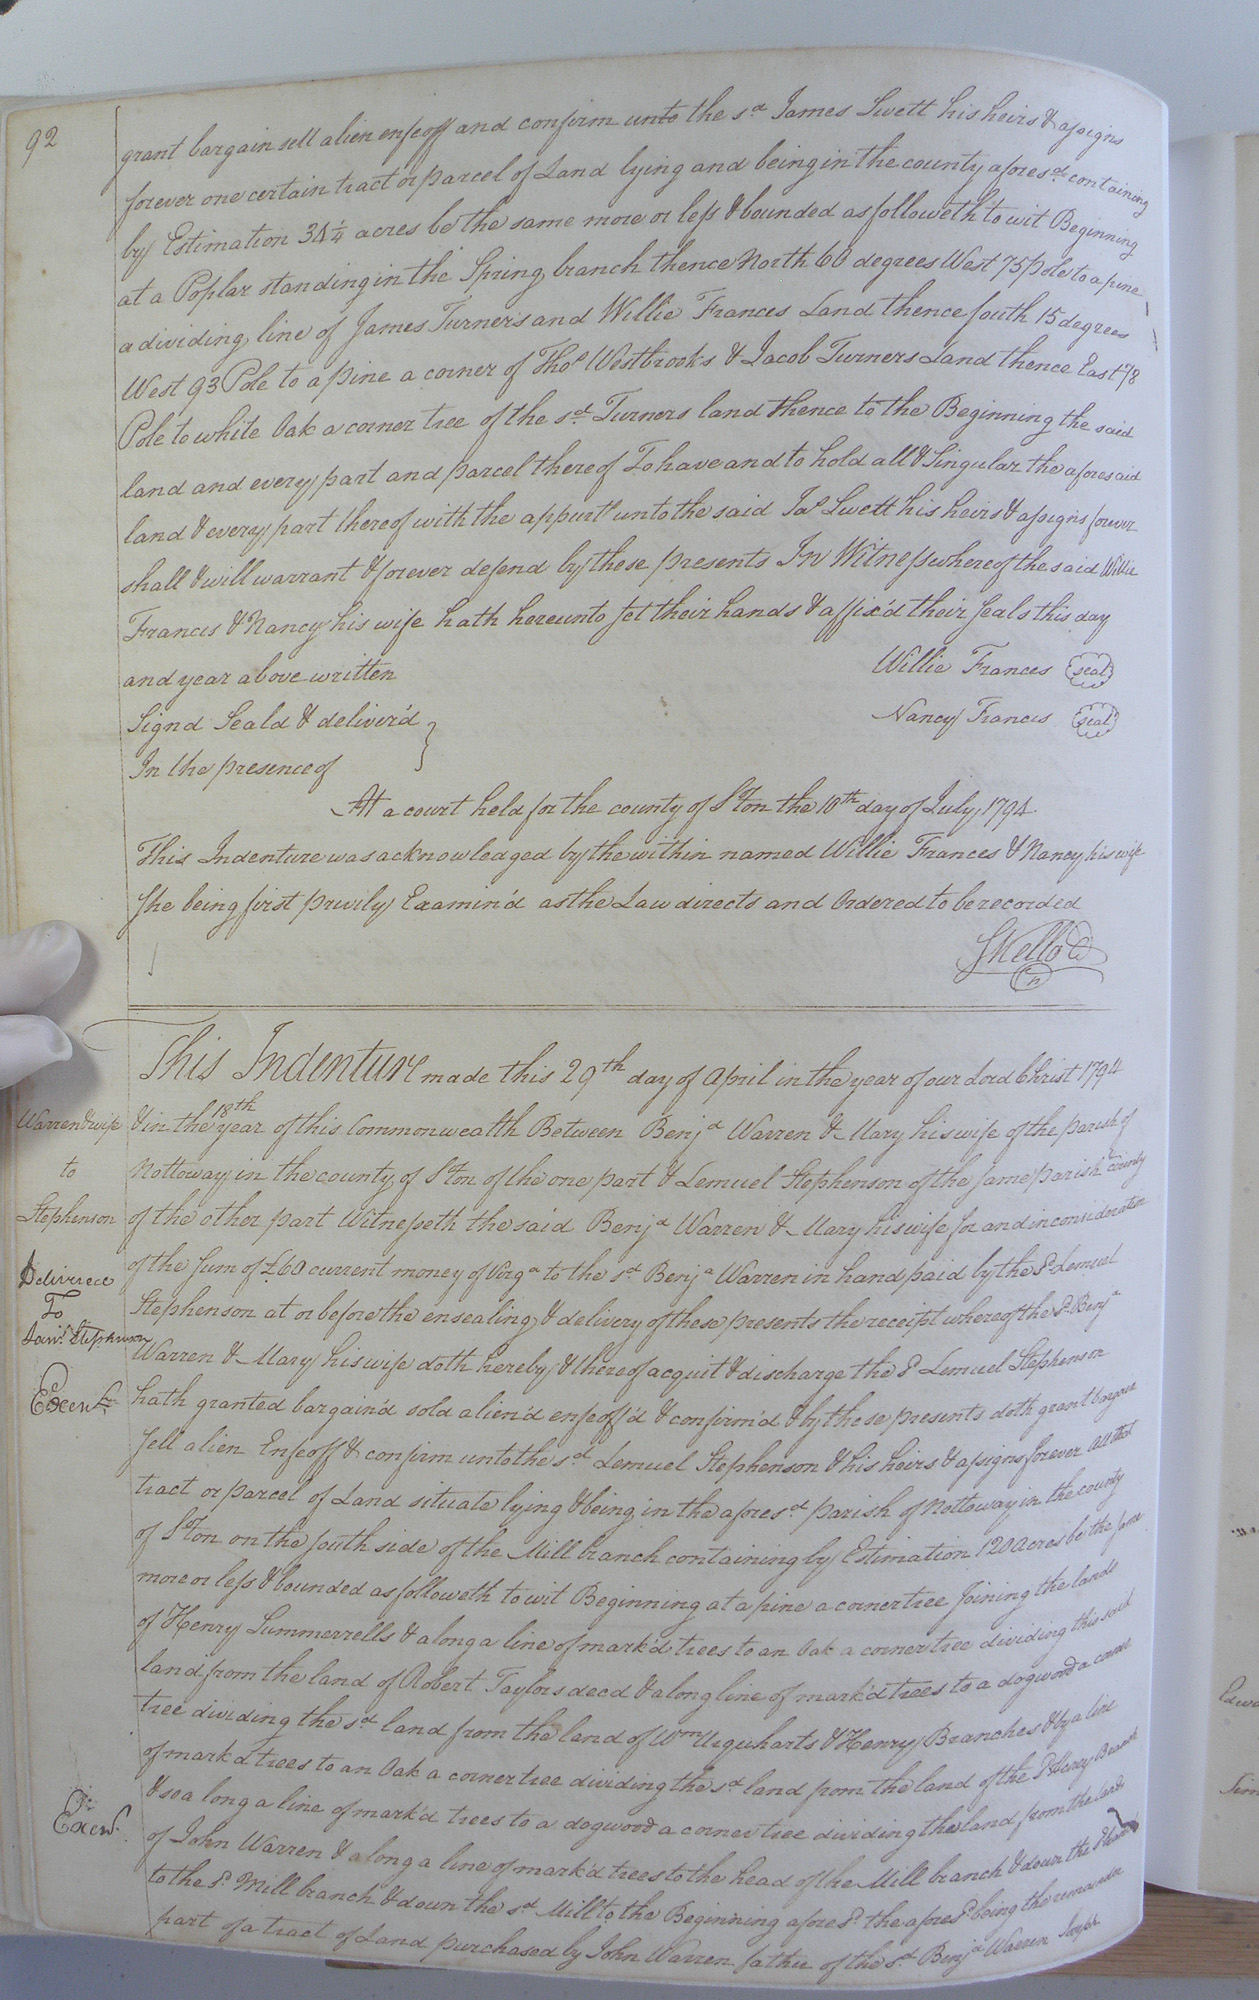 92
grant bargain sell alien enfeoff and confirm unto the sd James Swett his heirs & assigns
forever one certain tract or parcel of Land lying and being in the county aforesd containing
by Estimation 34¼ acres be the same more or less & bounded as followeth to wit Beginning
at a Poplar standing in the Spring branch thence North 60 degrees West 75 pole to a pine
a dividing line of James Turners and Willie Frances Land thence South 15 degrees
West 93 Pole to a pine a corner of Thos Westbrooks & Jacob Turners Land thence East 78
Pole to white Oak a corner tree of the sd Turners land thence to the Beginning the said
land and every part and parcel thereof To have and to hold all & Singular the aforesaid
land & every part thereof with the appurts unto the said Jas Swett his heirs & assigns forever
shall & will warrant & forever defend by these presents In Witness whereof the said Willie
Frances & Nancy his wife hath hereunto set their hands & affix'd their Seals this day
and year above written
Willie Frances seal
Signd Seald & deliver'd
Nancy Frances seal
In the presence of
At a court held for the county of S'Ton the 10th day of July 1794
This Indenture was acknowledged by the within named Willie Frances & Nancy his wife
She being first privily Examin'd as the Law directs and Ordered to be recorded
SKello Cl
Cn
This Indenture made this 29th day of April in the year of our Lord Christ 1794
Warren & wife
to
Stephenson
Delivired
To
Stephenson
Exend
& in the 18th year of this Commonwealth Between Benja Warren & Mary his wife of the parish of
Nottoway in the county of S'Ton of the one part & Lemuel Stephenson of the same parish & county
of the other part Witnesseth the said Benja Warren & Mary his wife for and in consideration
of the Sum of £60 current money of Virga to the sd Benja Warren in hand paid by the sd Lemuel
Stephenson at or before the ensealing & delivery of these presents the receipt whereof the sd Benja
Warren & Mary his wife doth hereby & thereof acquit & discharge the sd Lemuel Stephenson
hath granted bargain'd sold alien'd enfeoff'd & confirm'd & by these presents doth grant bargain
sell alien Enfeoff & confirm unto the sd Lemuel Stephenson & his heirs & assigns forever All that
tract or parcel of Land situate lying & being in the aforesd parish of Nottoway in the county
of S'Ton on the south side of the Mill branch containing by Estimation 120 Acres be the same
more or less & bounded as followeth to wit Beginning at a pine a corner tree Joining the lands
of Henry Summerrells & along a line of mark'd trees to an Oak a corner tree dividing this said
land from the land of Robert Taylors decd & along line of mark'd trees to a dogwood a corner
tree dividing the sd land from the land of Wm Urquharts & Henry Branches & by a line
of mark'd trees to an Oak a corner tree dividing the sd land from the land of the sd Henry Branch
& so a long a line of mark'd trees to a dogwood a corner tree dividing the land from the land
Exend
of John Warren & along a line of mark'd trees to the head of the Mill branch & down the sd branch
to the sd Mill branch & down the sd Mill to the Beginning aforesd the aforesd being the remainder
part of a tract of Land purchased by John Warren father of the sd Benja Warren